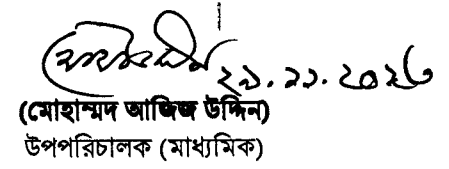 ২৯.১১.২০২৩
(মোহাম্মদ আজিজ উদ্দিন)
উপপরিচালক (মাধ্যমিক)